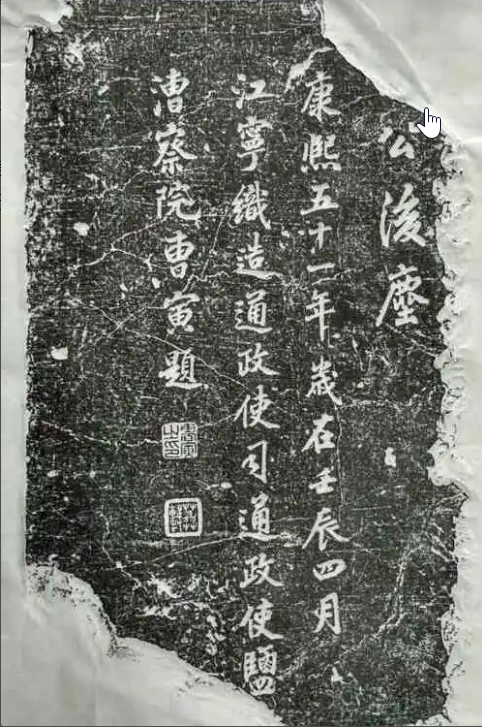 公後塵
康熙五十一年歲在壬辰四月
江寧織造通政使司通政使鹽
漕察院曹寅題